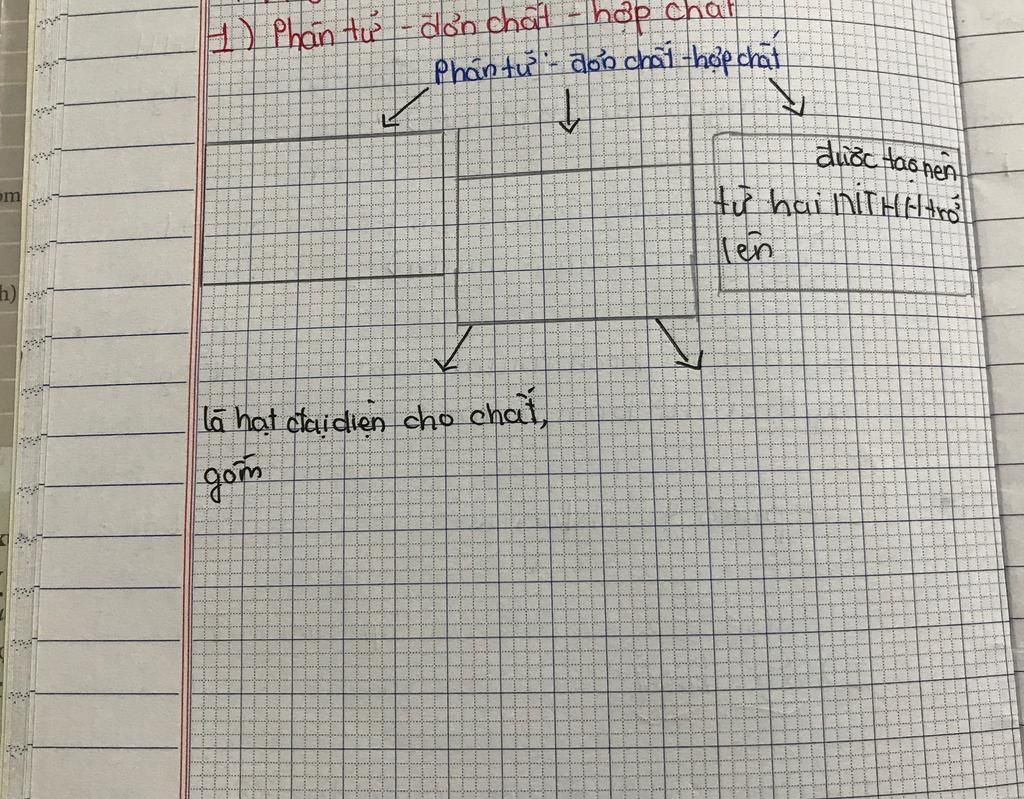 1) Phân tử - đơn chất - hợp chất
Phân tử - đơn chất - hợp chất
được tạo nên
từ hai NTHH trở
lên
là hạt đại diện cho chất,
gồm
om
h)